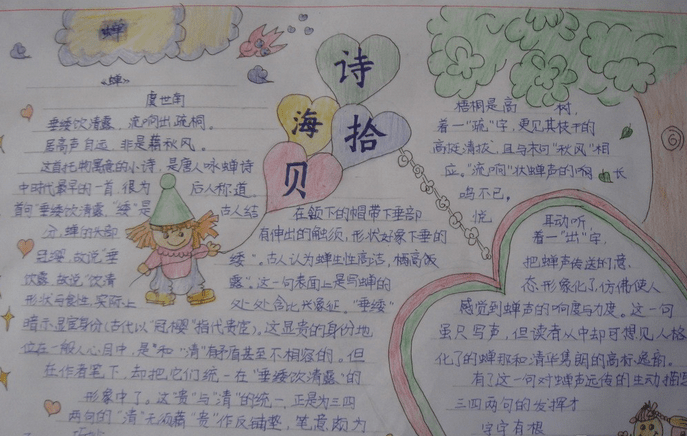 蝉
诗
海
拾
贝
《蝉》
虞世南
垂緌饮清露,流响出疏桐。
居高声自远,非是藉秋风。
这首托物寓意的小诗,是唐人咏蝉诗
中时代最早的一首,很为 后人称道。
首句"垂緌饮清露,"緌"是 古人结
在颔下的帽带下垂部
分,蝉的头部 有伸出的触须,形状好象下垂的
冠缨,故说"垂 緌"。古人认为蝉生性高洁,栖高饮
露,故说"饮清 露"。这一句表面上是写蝉的
形状与食性,实际上 处处含比兴象征。"垂緌"
暗示显宦身份(古代以"冠缨"指代贵宦)。这显贵的身份地
位在一般人心目中,是"和"清"有矛盾甚至不相容的。但
在作者笔下,却把它们统一在"垂緌饮清露"的
形象中了。这"贵"与"清"的统一,正是为三四
两句的"清"无须藉"贵"作反铺垫,笔意颇为
梧桐是高 树,
着一"疏"字,更见其枝干的
高挺清拔,且与末句"秋风"相
应。"流响"状蝉声的 长
鸣不已,
悦 耳动听,
着一"出"字,
把蝉声传送的意
态形象化了,仿佛使人
感觉到蝉声的响度与力度。这一句
虽只写声,但读者从中却可想见人格
化了的蝉那和清华隽朗的高标逸韵。
有了这一句对蝉声远传的生动描
三四两句的发挥才
字字有根